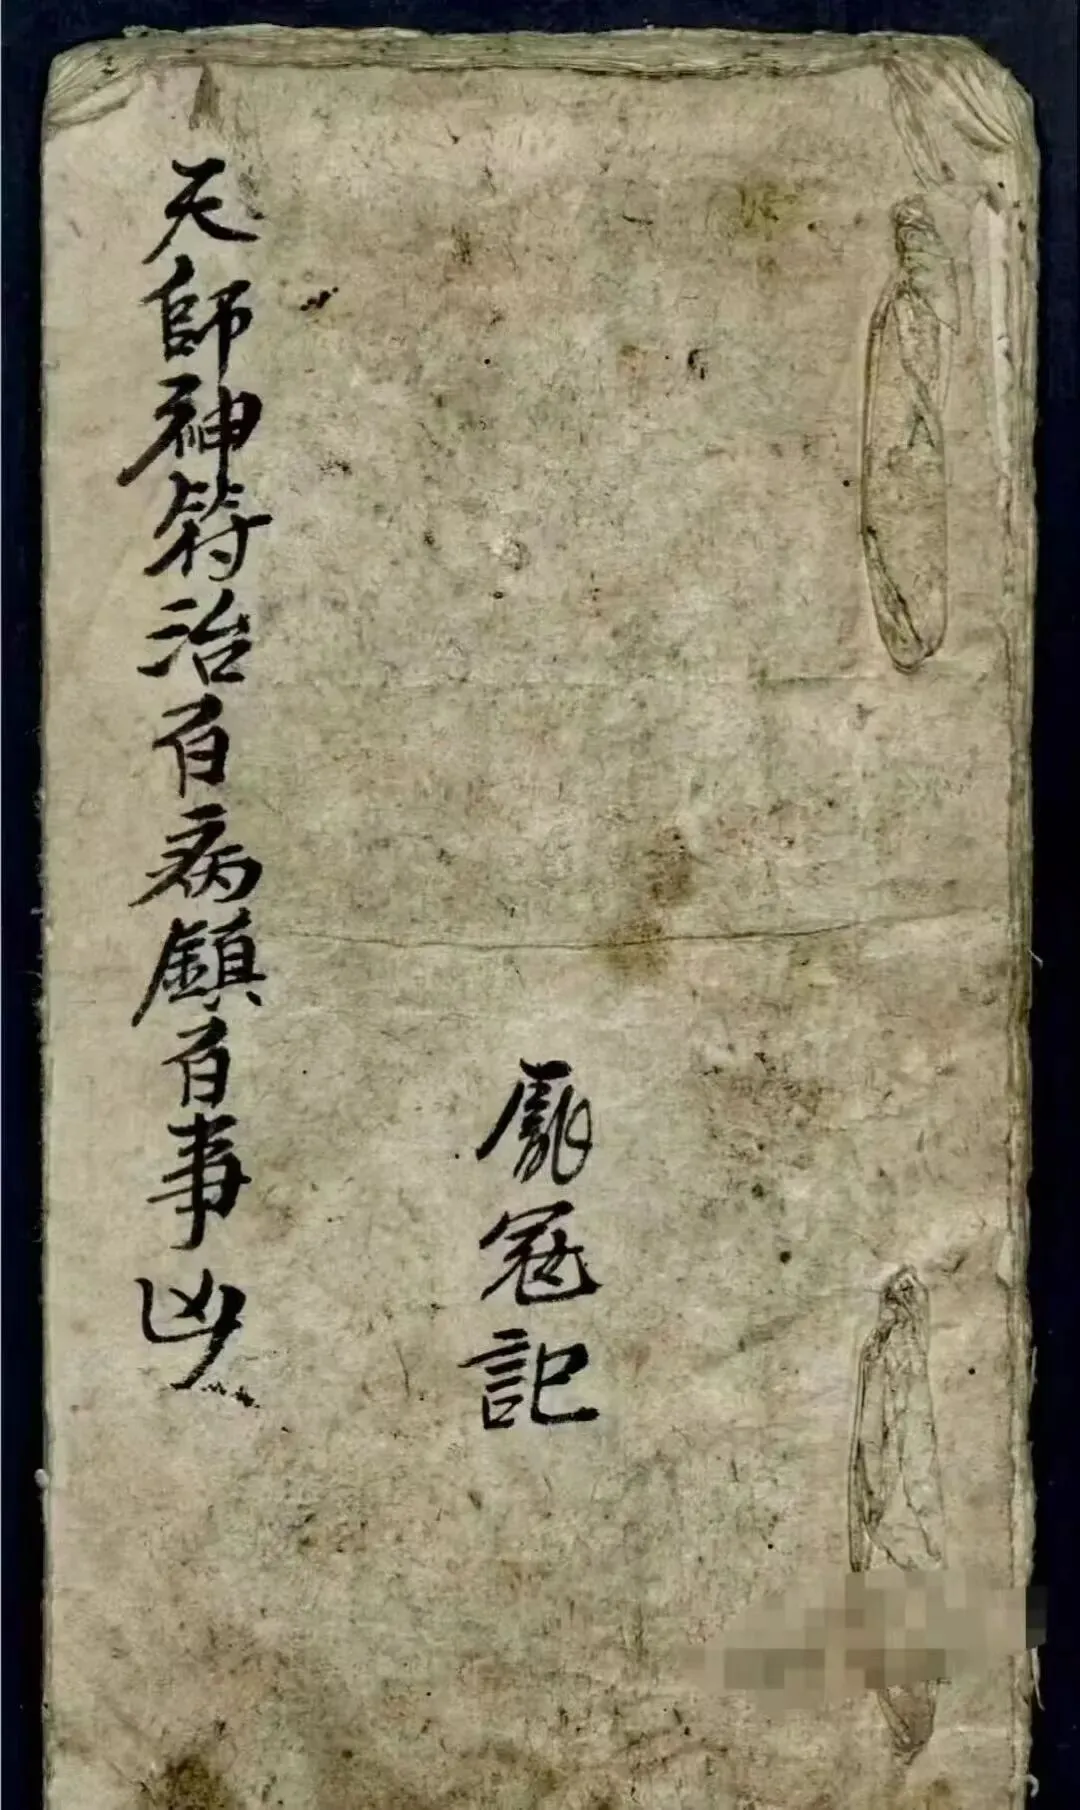 龐冠記
天師神符治百病鎮百事凶